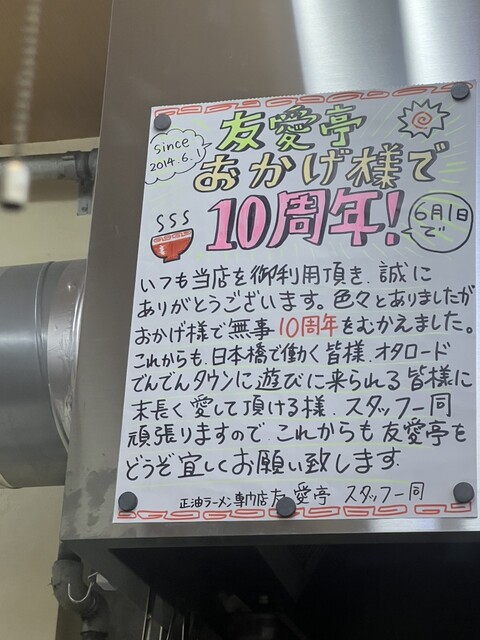 since
2014.6.1
友愛亭
おかげ様で
10周年!
6月1日
で
いつも当店を御利用頂き、誠に
ありがとうございます。色々とありましたが
おかげ様で無事10周年をむかえました。
これからも、日本橋で働く皆様、オタロード
でんでんタウンに遊びに来られる皆様に
末長く愛して頂ける様、スタッフ一同
頑張りますので、これからも友愛亭を
どうぞ宜しくお願い致します。
正油ラーメン専門店友愛亭 スタッフ一同